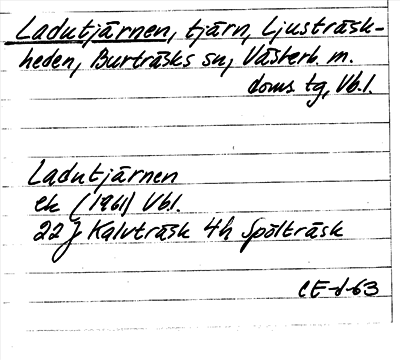 Ladutjärnen, tjärn, Ljusträsk-
heden, Burträsks sn, Västerb. m.
doms tg, Vb. l.
Ladutjärnen
ek (1961) Vbl.
22 J Kalvträsk 4h Spölträsk
CE-d-63